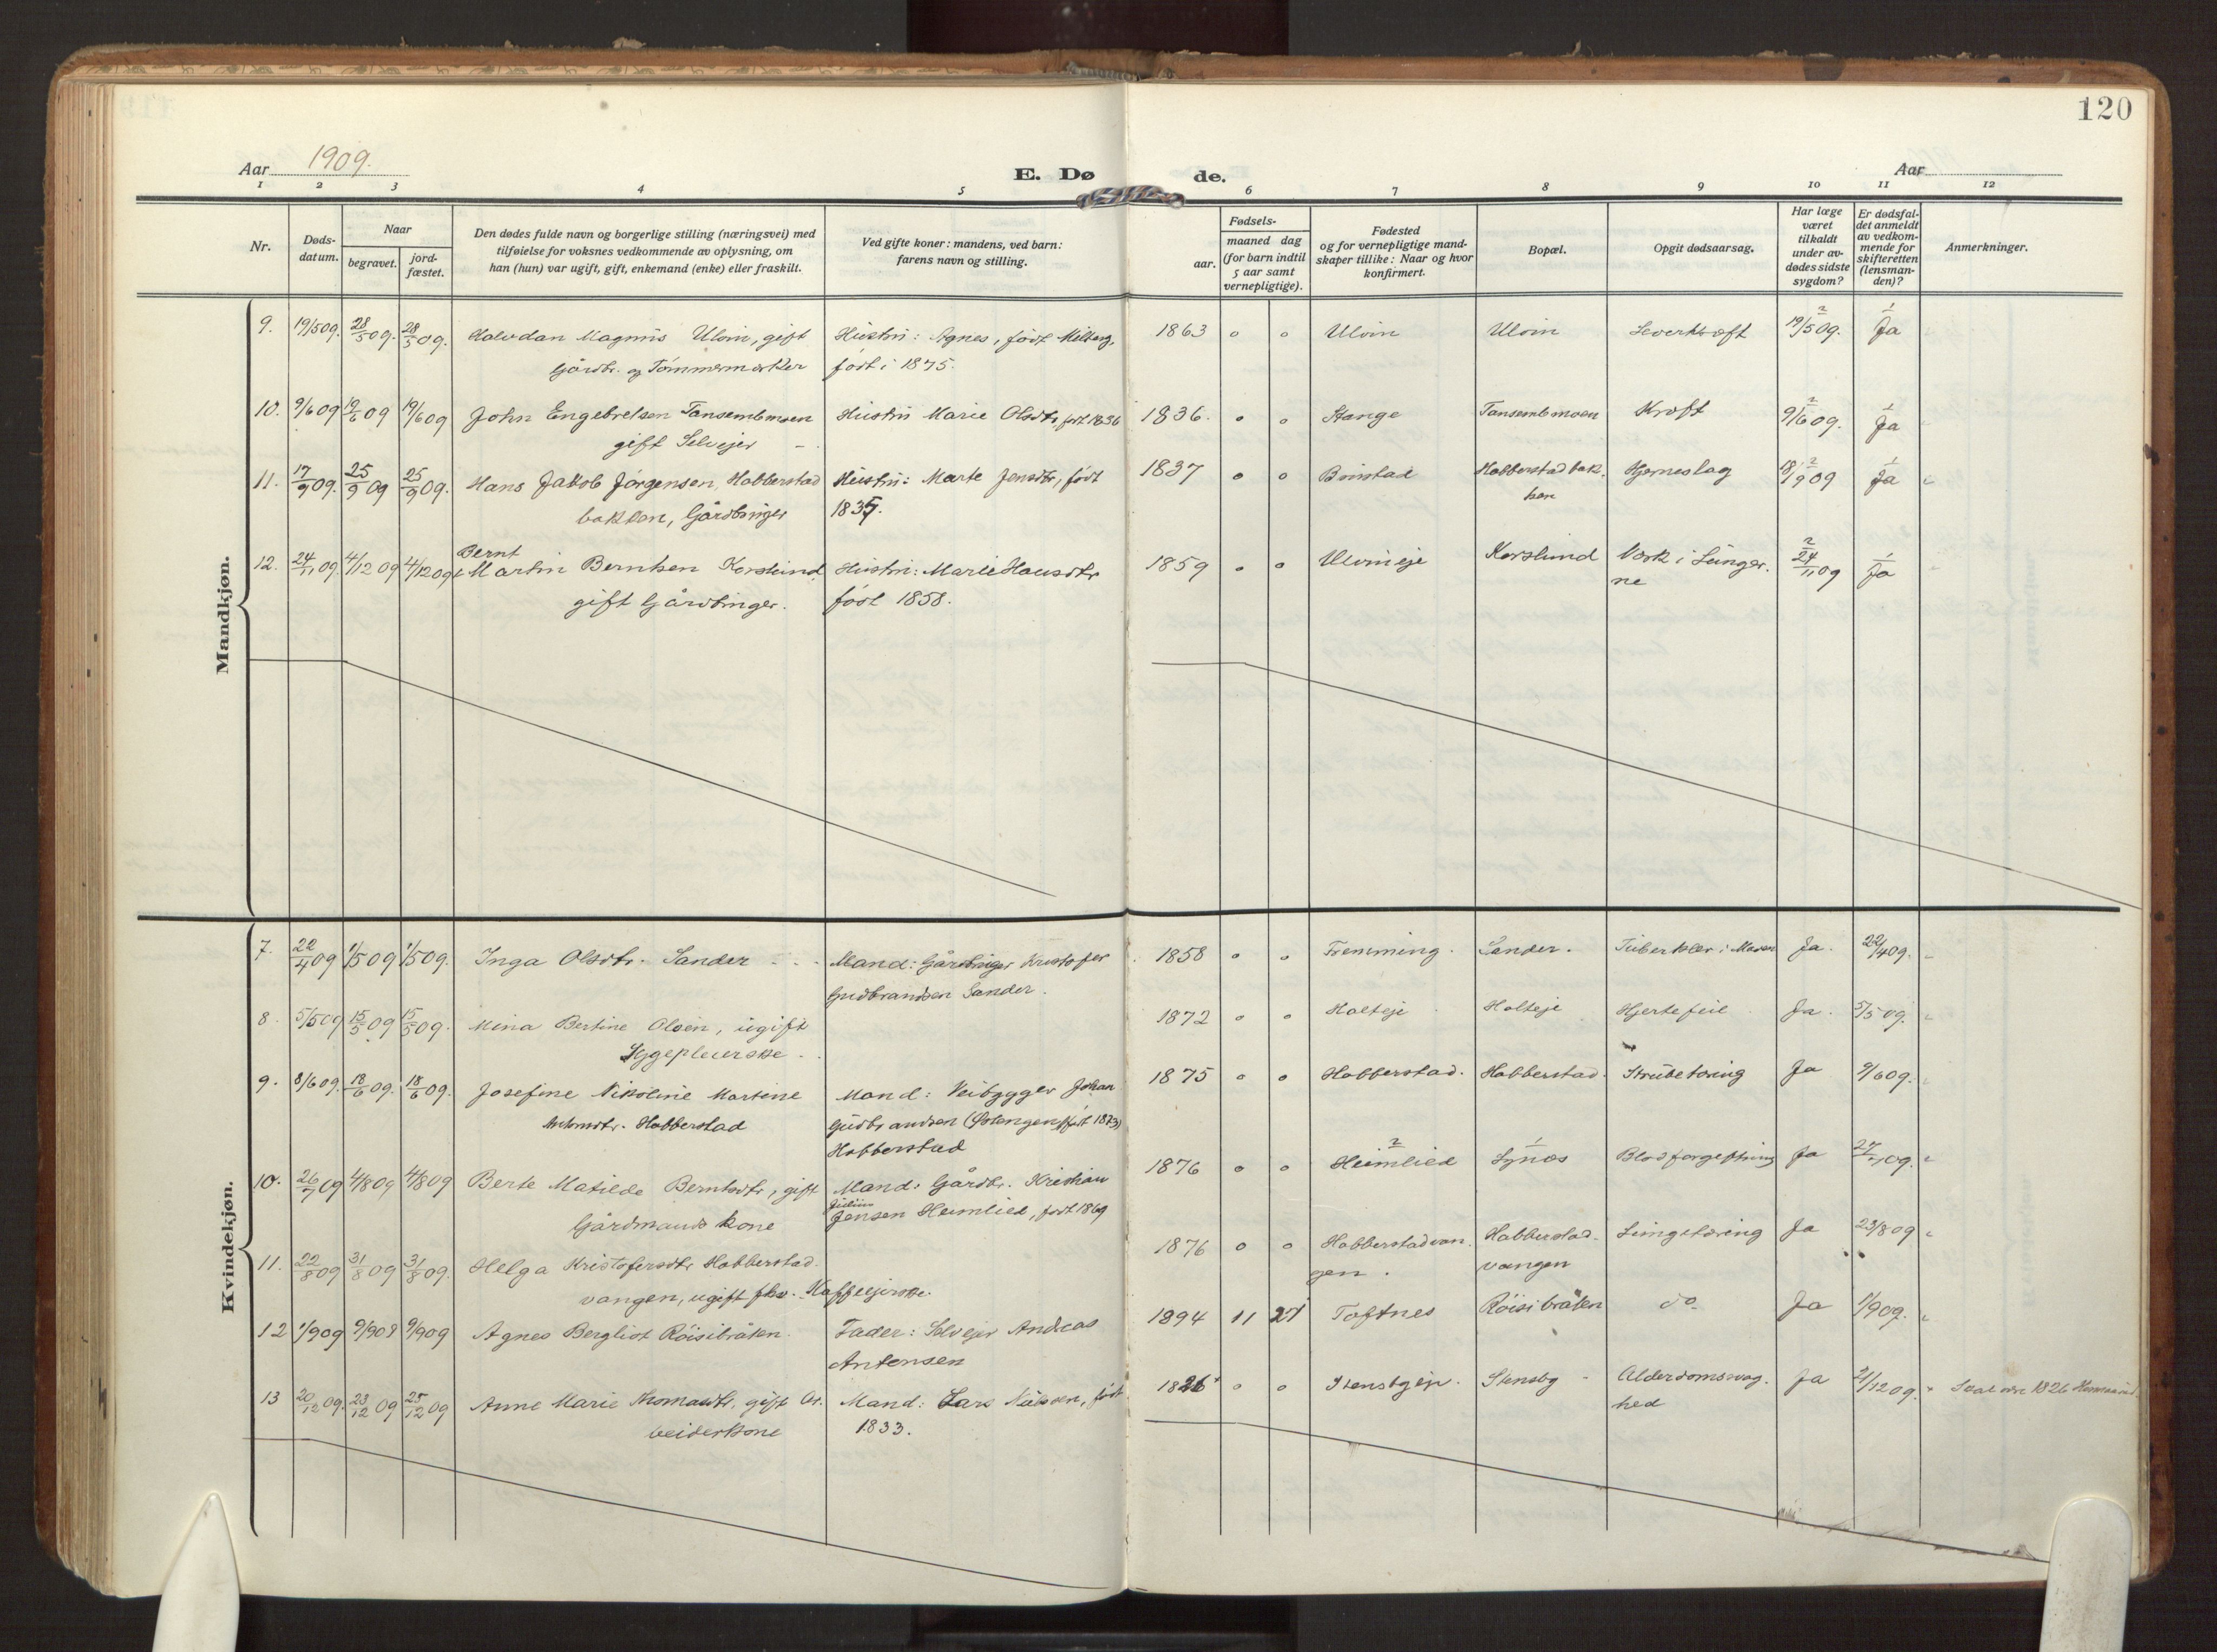 120
Aar 1909.
E. Dø de.
Aar
1 2 3 4 5 6 7 8 9 10 11 12
Nr.
Døds-
datum.
Naar
begravet.
jord-
fæstet.
Den dødes fulde navn og borgerlige stilling (næringsvei) med
tilføielse for voksnes vedkommende av oplysning, om
han (hun) var ugift, gift, enkemand (enke) eller fraskilt.
Ved gifte koner: mandens, ved barn:
farens navn og stilling.
Fødsels-
aar.
maaned dag
(for barn indtil
5 aar samt
vernepligtige).
Fødested
og for vernepligtige mand-
skaper tillike: Naar og hvor
konfirmert.
Bopæl.
Opgit dødsaarsag.
Har læge
været
tilkaldt
under av-
dødes sidste
sygdom?
Er dødsfal-
det anmeldt
av vedkom-
mende for
skifteretten
(lensman-
den)?
Anmerkninger.
Mandkjøn.
9. 19/5 09. 28/5 09. 28/5 09. Halvdan Magnus Ulvin, gift Hustru: Agnes, født Milberg, 1863 o o Ulvin Ulvin Leverkræft 2 19/5 09. 1 Ja
Gårdbr. og Tømmermerker født i 1875.
10. 9/6 09 19/6 09 19/6 09 John Engebretsen Tansembmoen Hustru Marie Olsdtr, født 1836 1836. o o Stange Tansembmoen Kræft 2 9/6 09. 1 Ja
gift Selvejer
11. 17/9 09. 25/9 09 25/9 09. Hans Jakob Jørgensen, Habberstad Hustru: Marte Jensdtr, født 1837 o o Bonstad Habberstadbak- Hjerneslag 2 18/9 09 1 Ja
bakken, Gårdbruger 1835. ken
12. 24/11 09. 4/12 09 4/12 09 Bernt
Martin Berntsen Korslund Hustru: Marie Hansdtr 1859 o o Ulvineje Korslund Værk i Lunger- 2 24/11 09 1 Ja
gift Gårdbruger. født 1858. ne
Kvindekjøn.
7. 22/4 09 1/5 09 1/5 09. Inga Olsdtr. Sander Mand: Gårdbruger Kristofer 1858 o o Fremming. Sander. Tuberkler i Maven Ja. 22/4 09.
Gudbrandsen Sander.
8. 5/5 09 15/5 09 15/5 09. Mina Bertine Olsen, ugift 1872 o o Holteje Holteje Hjertefeil Ja. 5/5 09.
Sygepleierske
9. 8/6 09. 18/6 09. 18/6 09. Josefine Nikoline Martine Mand: Veibygger Johan 1875 o o Habberstad. Habberstad. Strubetæring Ja 9/6 09.
Antonsdtr. Habberstad Gudbrandsen (Østengen) født 1873)
Habberstad
10. 26/7 09 4/8 09 4/8 09 Berte Matilde Berntsdtr, gift Mand: Gårdbr. Kristian 1876 o o 2 Heimlied 1 Synøs Blodforgiftning Ja 27/7 09.
Gårdmands kone Julius
Jensen Heimlied, født 1869
11. 22/8 09 31/8 09 31/8 09. Helga Kristofersdtr Habberstad- 1876 o o Habberstadvan- Habberstad- Lungetæring Ja 23/8 09
vangen, ugift fhv. Kaffeejerske. gen. vangen
12 1/9 09 9/9 09 9/9 09 Agnes Bergliot Röisibråten. Fader: Selvejer Andreas 1894 11 27 Toftnes Röisibråten do Ja 1/9 09.
Antonsen
13 20/12 09. 23/12 09 25/12 09 Anne Marie Thomasdtr, gift Ar- Mand: Lars Nilssen, født 1826 o o Stensbyeje. Stensby Alderdomssvag- Ja 21/12 09. Skal være 1826
beiderkone 1833. hed